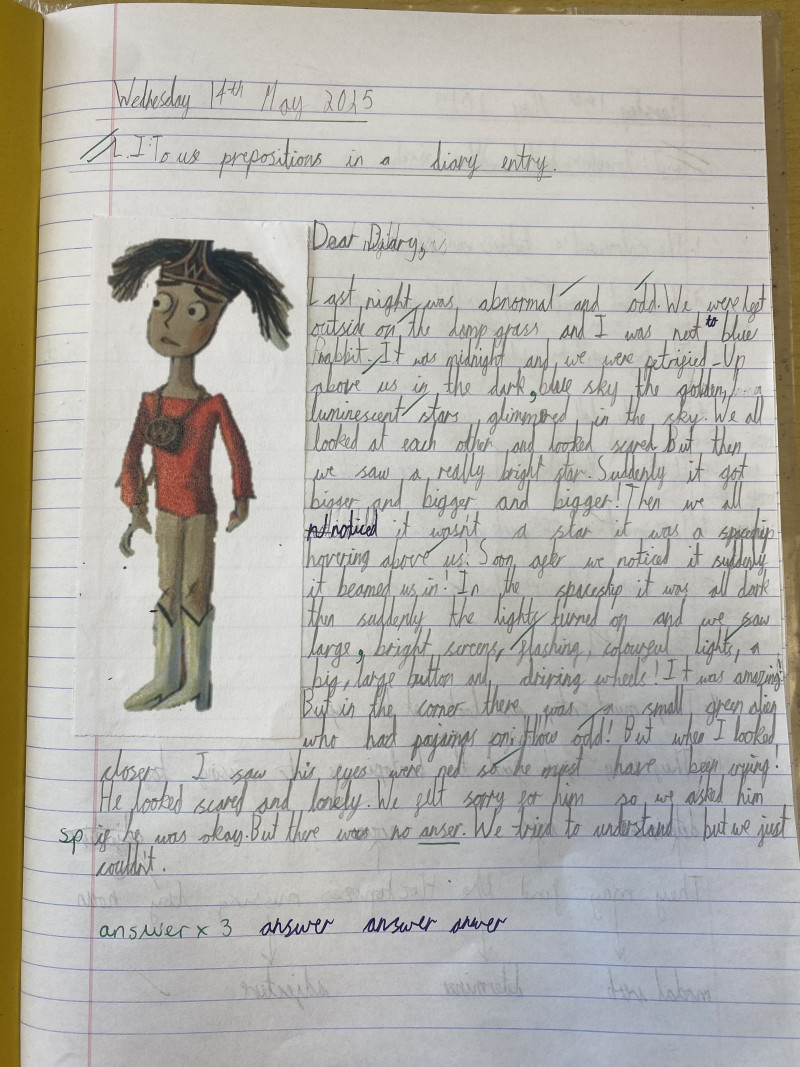 Wednesday 14th May 2025
L.I: To use prepositions in a diary entry.
W
Dear Diary,
Last night was abnormal and odd. We were left
outside on the damp grass and I was next to blue
Rabbit. It was midnight and we were petrified. Up
above us in the dark, blue sky the golden,
luminescent stars glimmered in the sky. We all
looked at each other and looked scared. But then
we saw a really bright star. Suddenly it got
bigger and bigger and bigger! Then we all
noticed it wasn't a star it was a spaceship
hovering above us! Soon after we noticed it suddenly
it beamed us in! In the spaceship it was all dark
then suddenly the lights turned on and we saw
large, bright screens, flashing, colourful lights, a
big, large button and driving wheels! It was amazing!
But in the corner there was a small green alien
who had pajamas on. How odd! But when I looked
closer I saw his eyes were red so he must have been crying!
He looked scared and lonely. We felt sorry for him so we asked him
sp if he was okay. But there was no anser. We tried to understand but we just
couldn't.
answer x 3 answer answer anwer